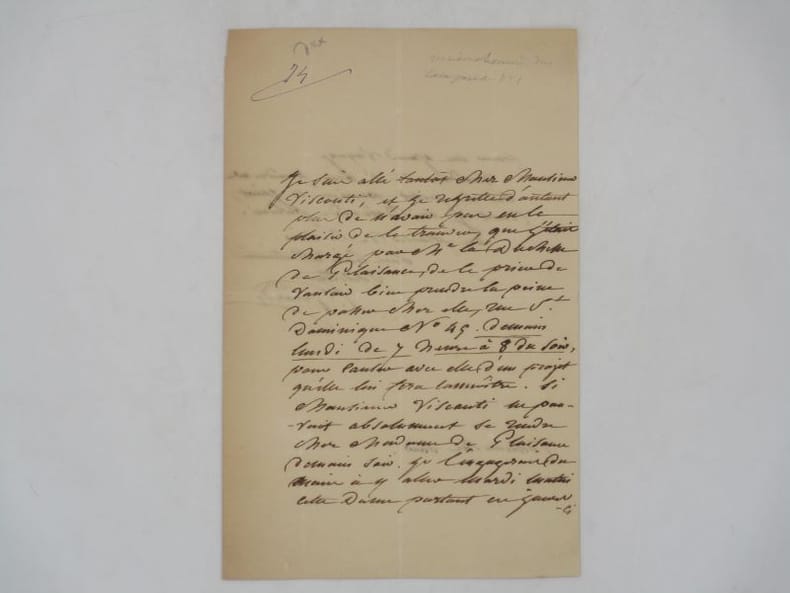 24
Je suis allé tantôt chez Monsieur
Visconti, et je regrette d'autant
plus de n'avoir pas eu le
plaisir de le trouver, que j'étais
chargé par Me la Duchesse
de Plaisance, de le prier de
vouloir bien prendre la peine
de passer chez elle, rue St
Dominique No 45. demain
lundi de 7 heures à 8 du soir,
pour causer avec elle d'un projet
qu'elle lui fera connaître. Si
Monsieur Visconti ne pou-
vait absolument se rendre
chez Madame de Plaisance
demain soir. je l'engagerais du
moins à y aller mardi matin
cette Dame partant en